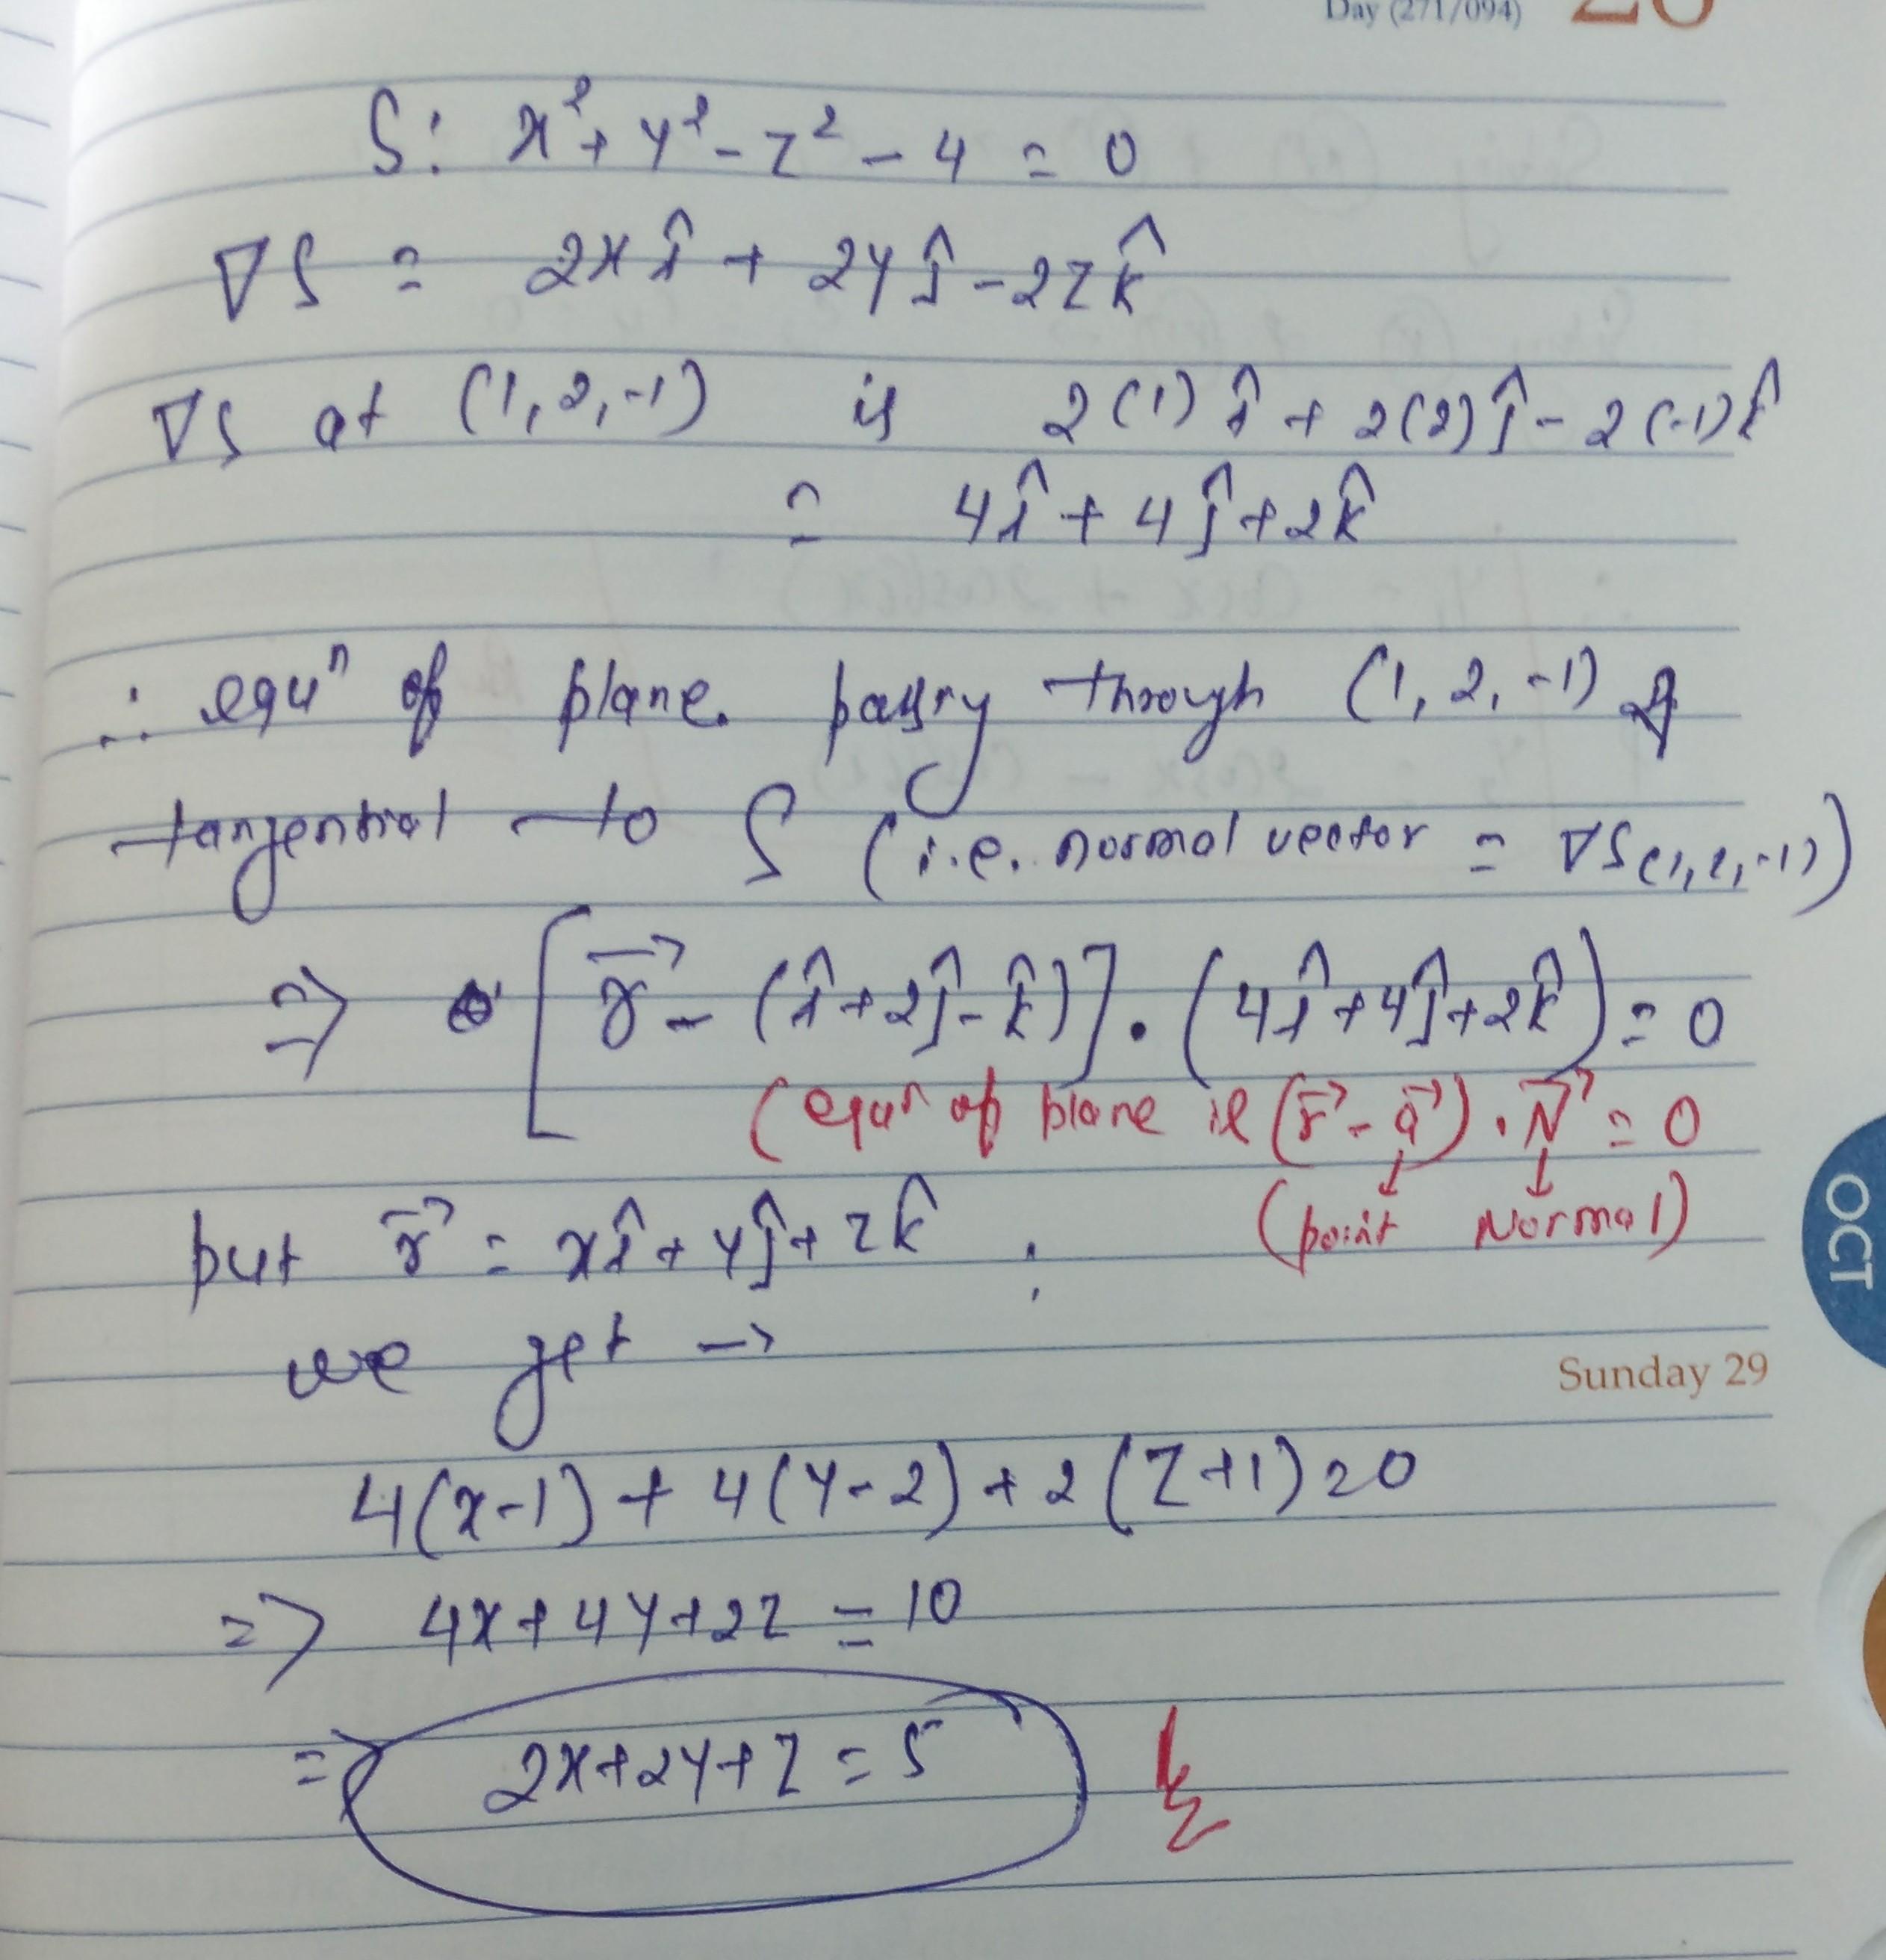 Day (271/094) 28
S: x² + y² - z² - 4 = 0
∇S = 2x î + 2y ĵ - 2z k̂
∇S at (1, 2, -1) is 2(1) î + 2(2) ĵ - 2(-1) k̂
= 4î + 4ĵ + 2k̂
∴ equⁿ of plane. passing through (1, 2, -1) &
tangential to S (i.e. normal vector = ∇S(1, 2, -1))
⇒ [r⃗ - (î + 2ĵ - k̂)] . (4î + 4ĵ + 2k̂) = 0
(equⁿ of plane is (r⃗ - a⃗) . N⃗ = 0
↓ ↓
(point Normal)
OCT
put r⃗ = xî + yĵ + zk̂ ;
we get →
Sunday 29
4(x-1) + 4(y-2) + 2(z+1) = 0
=> 4x + 4y + 2z = 10
=> 2x + 2y + z = 5